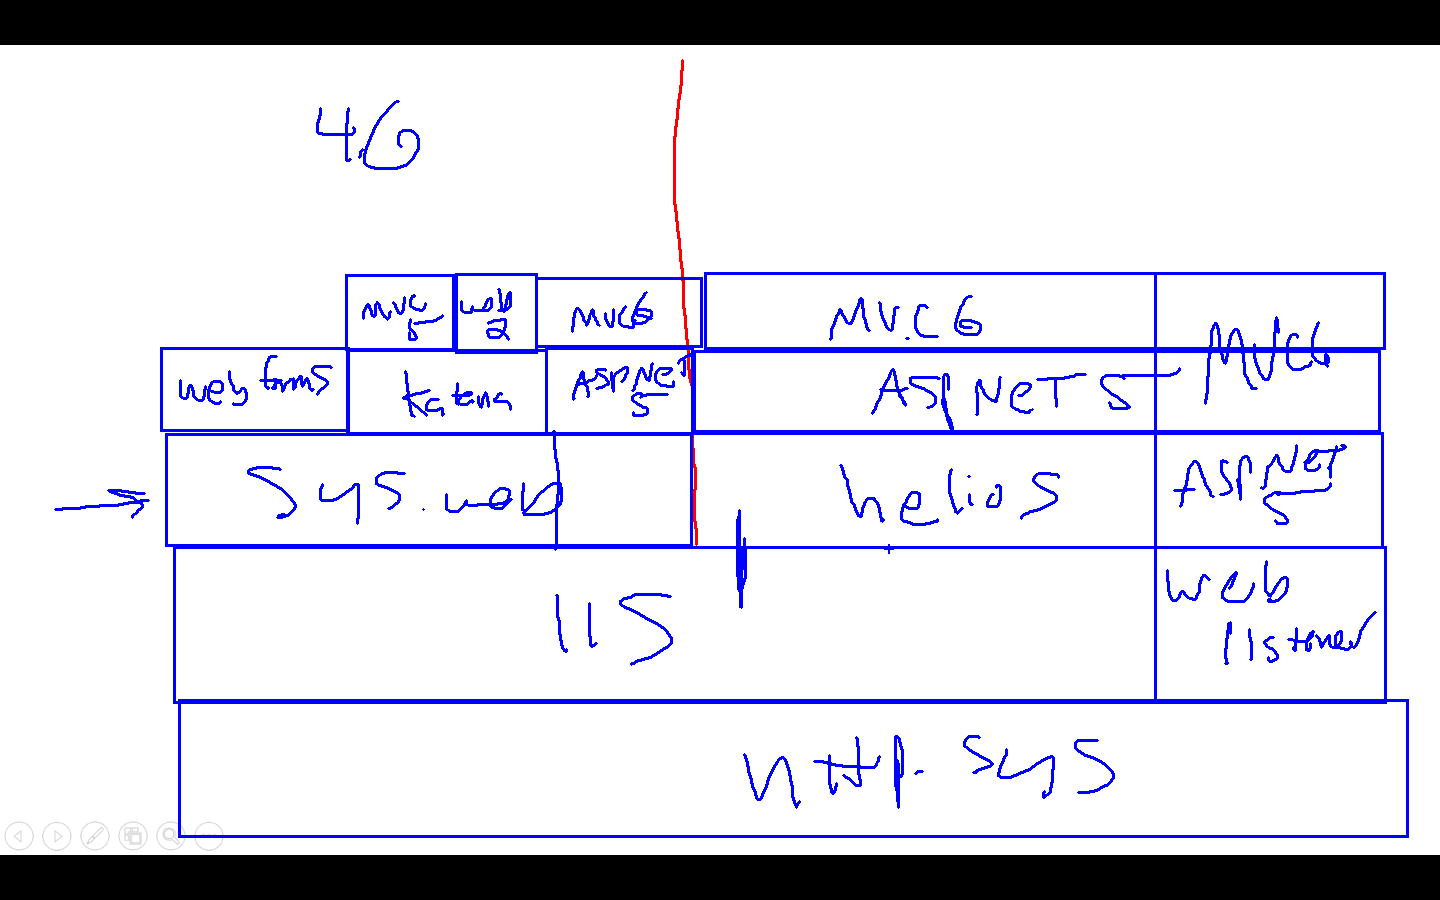 4.6
MVC
5
web
2
MVC6
MV.C 6
MVC6
web forms
katana
ASP.NET
5
ASP NET 5
sys.web
helios
ASP.NET
5
IIS
web
listener
http.sys